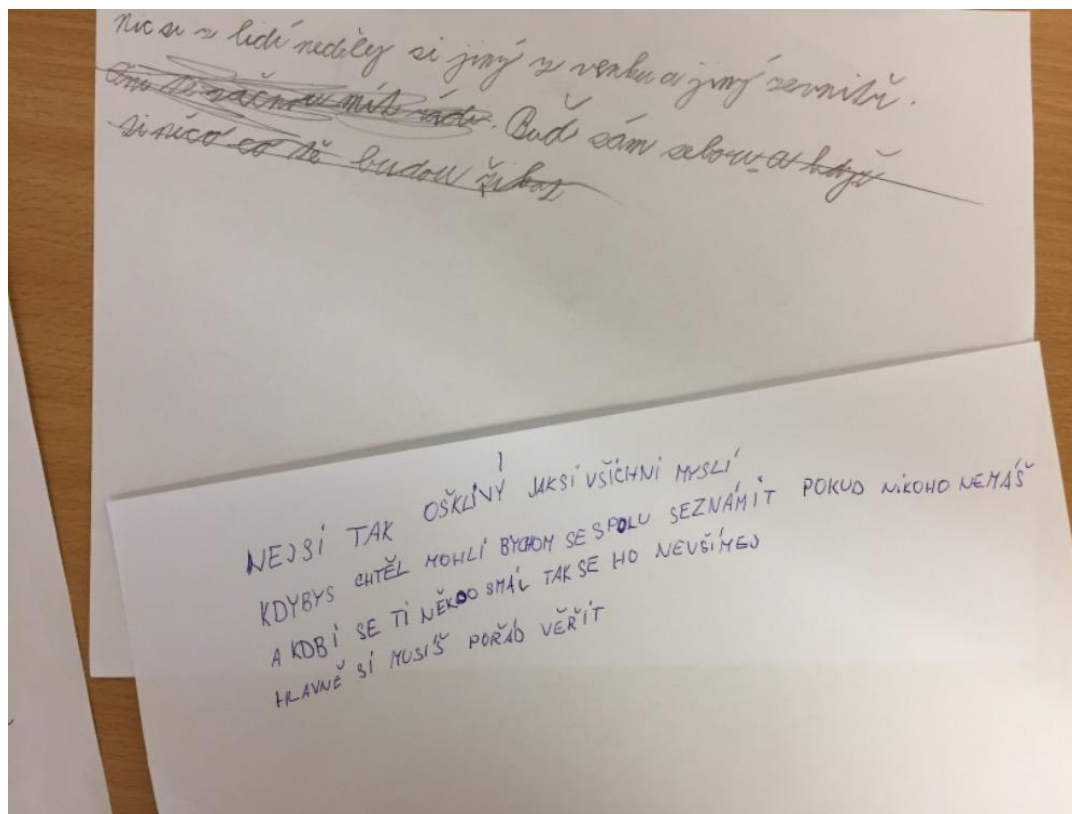 Nic si z lidí nedělej si jiný z venku a jiný zevnitř.
Ani tě začnou mít rádi. Buď sám sebou a když
si něco co tě budou
NEJSI TAK OŠKLIVÝ JAKSI VŠICHNI MYSLÍ
KDYBYS CHTĚL MOHLI BYCHOM SE SPOLU SEZNÁMIT POKUD NIKOHO NEMÁŠ
A KDBI SE TI NĚKDO SMÁL TAK SE HO NEVŠÍMEJ
HLAVNĚ SI MUSÍŠ POŘÁD VĚŘIT